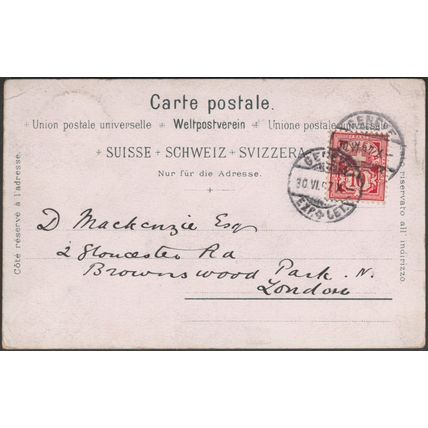 Carte postale.
Union postale universelle + Weltpostverein + Unione postale universale
+ SUISSE + SCHWEIZ + SVIZZERA
Nur für die Adresse.
Côté réservé à l'adresse.
D Mackenzie Esq
2 Gloucester Rd
Brownswood Park. N.
London
riservato all' indirizzo
GENÈVE
30 VI
EXP. LET.